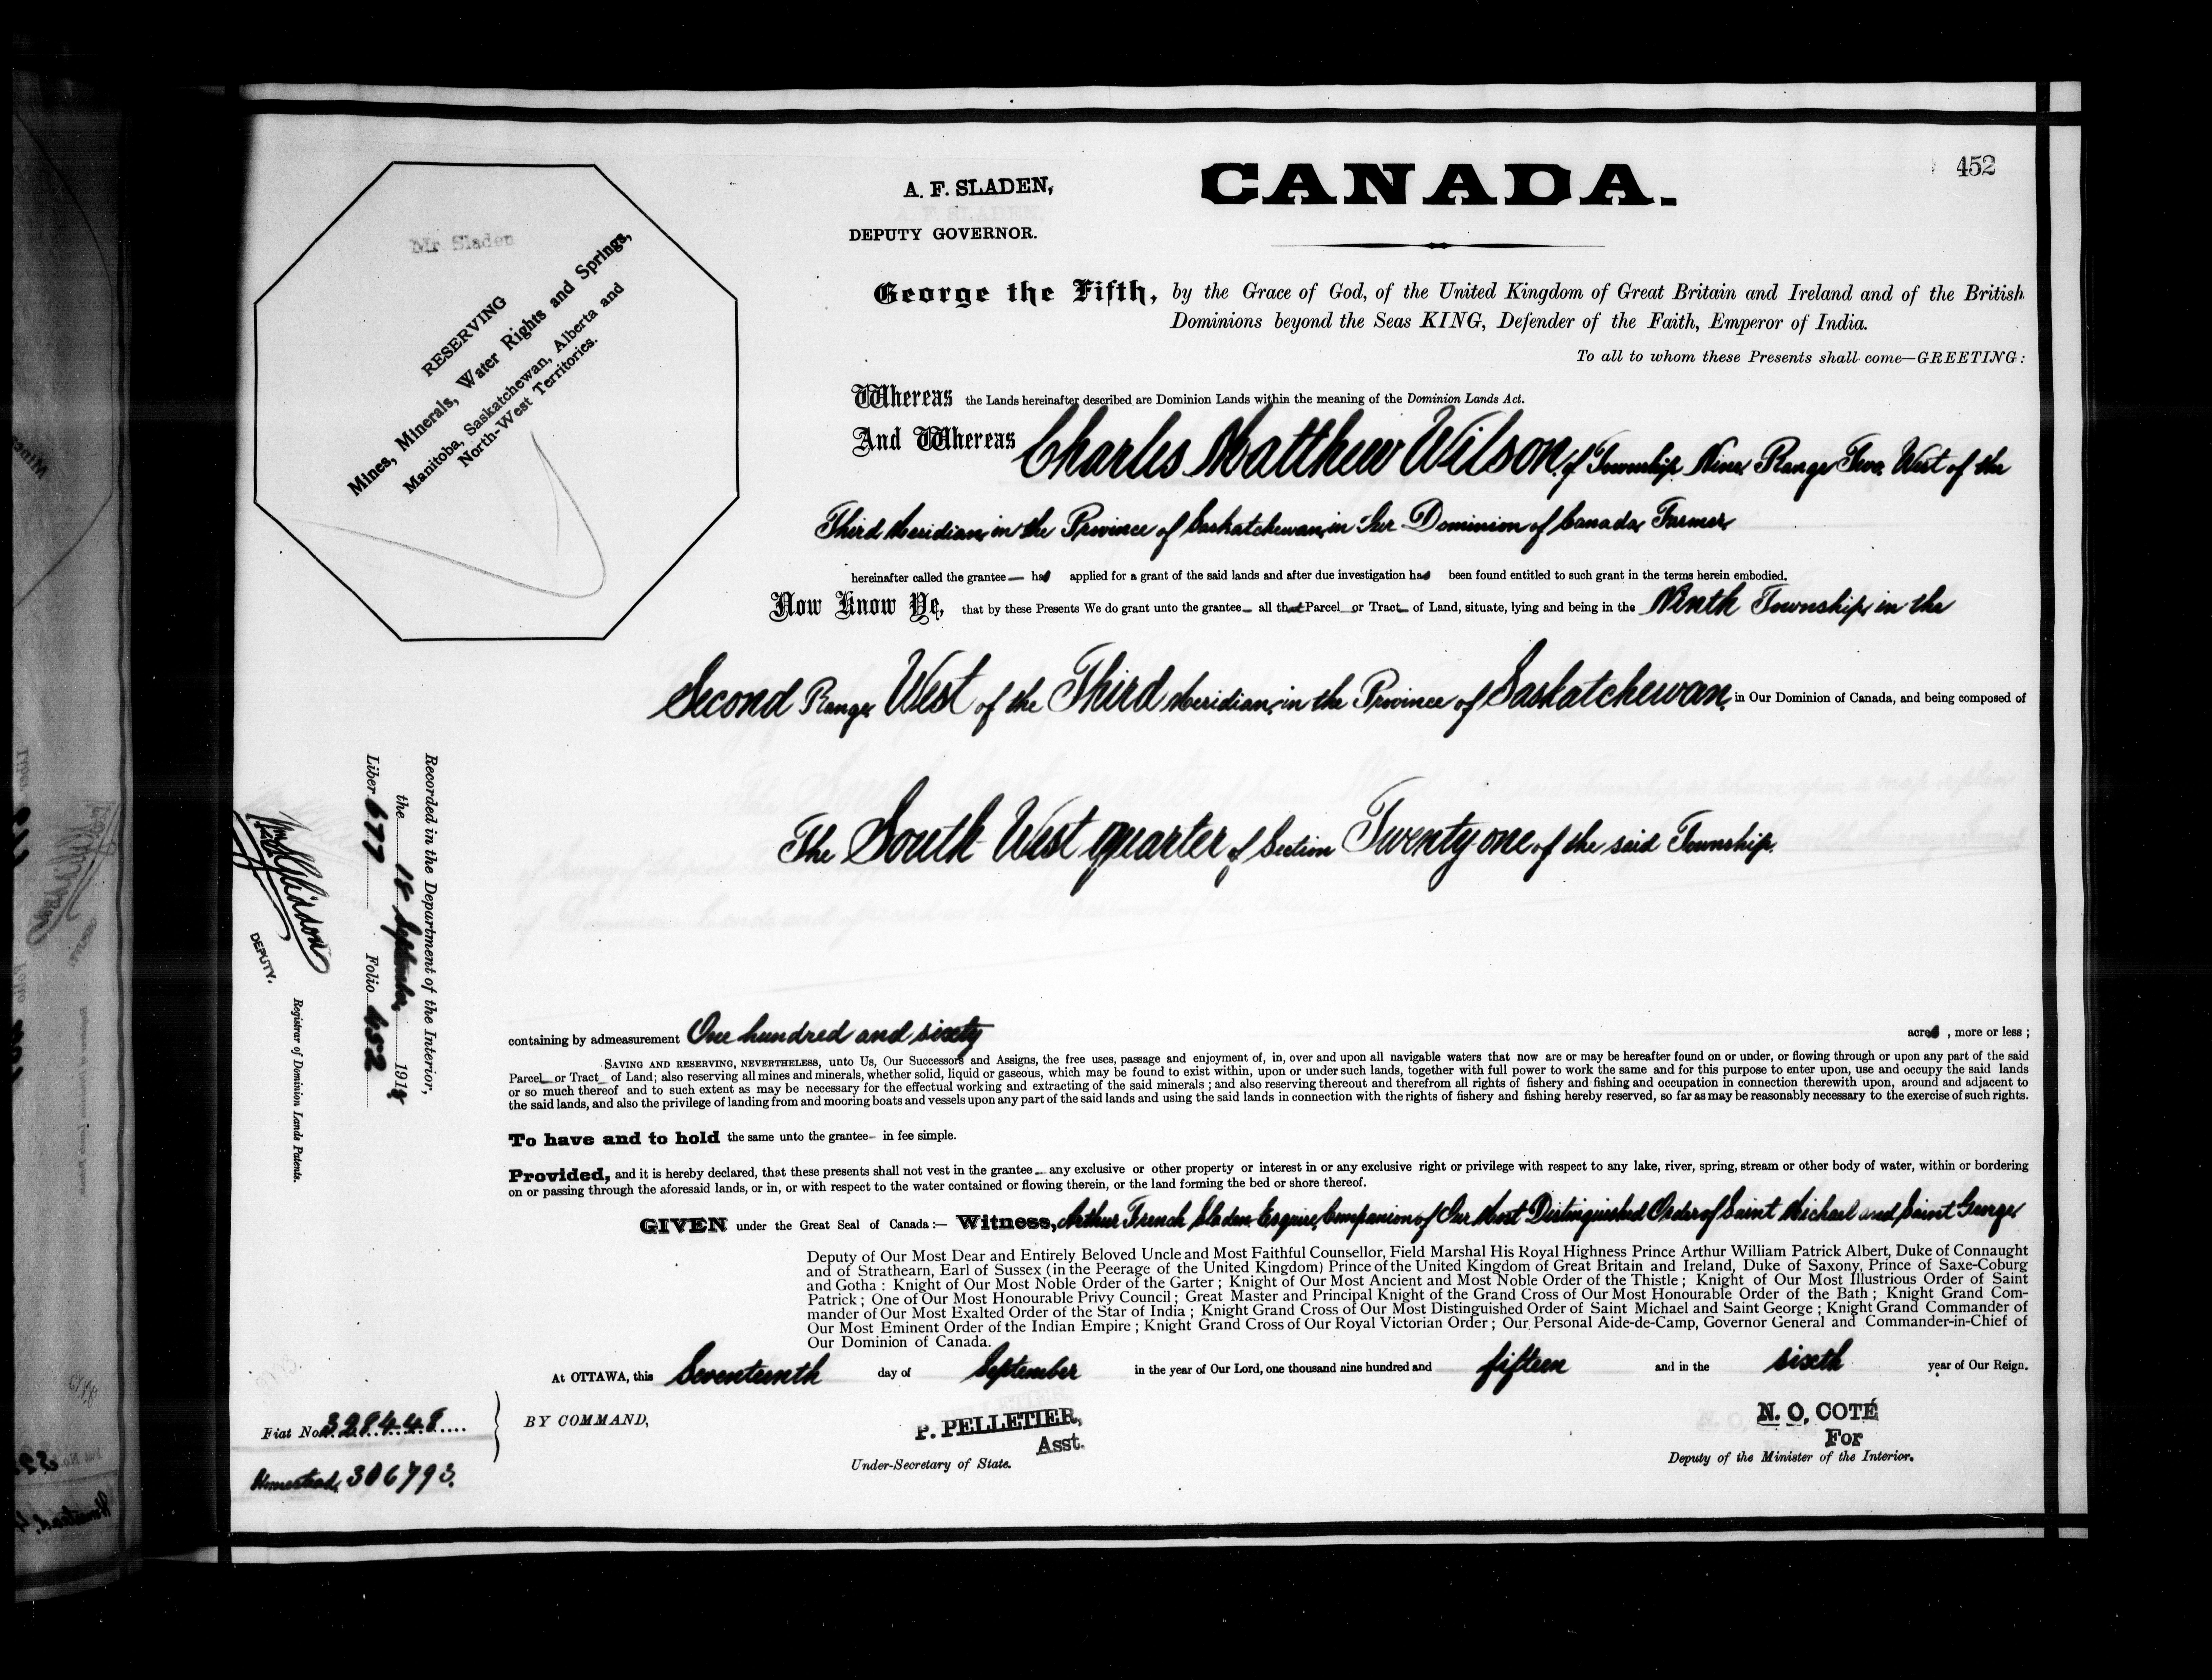 452
A. F. SLADEN,
DEPUTY GOVERNOR.
CANADA.
Mr Sladen
RESERVING
Mines, Minerals, Water Rights and Springs,
Manitoba, Saskatchewan, Alberta and
North-West Territories.
George the Fifth, by the Grace of God, of the United Kingdom of Great Britain and Ireland and of the British
Dominions beyond the Seas KING, Defender of the Faith, Emperor of India.
To all to whom these Presents shall come—GREETING:
Whereas the Lands hereinafter described are Dominion Lands within the meaning of the Dominion Lands Act.
And Whereas Charles Matthew Wilson, of Township Nine, Range Two, West of the
Third Meridian, in the Province of Saskatchewan, in Our Dominion of Canada, Farmer,
hereinafter called the grantee— has applied for a grant of the said lands and after due investigation has been found entitled to such grant in the terms herein embodied.
Now Know Ye, that by these Presents We do grant unto the grantee— all that Parcel or Tract— of Land, situate, lying and being in the Ninth Township, in the
Second Range, West of the Third Meridian, in the Province of Saskatchewan, in Our Dominion of Canada, and being composed of
The South West quarter of Section Twenty-one of the said Township.
containing by admeasurement One hundred and sixty acres, more or less;
SAVING AND RESERVING, NEVERTHELESS, unto Us, Our Successors and Assigns, the free uses, passage and enjoyment of, in, over and upon all navigable waters that now are or may be hereafter found on or under, or flowing through or upon any part of the said
Parcel or Tract of Land; also reserving all mines and minerals, whether solid, liquid or gaseous, which may be found to exist within, upon or under such lands, together with full power to work the same and for this purpose to enter upon, use and occupy the said lands
or so much thereof and to such extent as may be necessary for the effectual working and extracting of the said minerals; and also reserving thereout and therefrom all rights of fishery and fishing and occupation in connection therewith upon, around and adjacent to
the said lands, and also the privilege of landing from and mooring boats and vessels upon any part of the said lands and using the said lands in connection with the rights of fishery and fishing hereby reserved, so far as may be reasonably necessary to the exercise of such rights.
To have and to hold the same unto the grantee— in fee simple.
Provided, and it is hereby declared, that these presents shall not vest in the grantee— any exclusive or other property or interest in or any exclusive right or privilege with respect to any lake, river, spring, stream or other body of water, within or bordering
on or passing through the aforesaid lands, or in, or with respect to the water contained or flowing therein, or the land forming the bed or shore thereof.
GIVEN under the Great Seal of Canada:— Witness, Arthur French Sladen Esquire, Companion of Our Most Distinguished Order of Saint Michael and Saint George,
Deputy of Our Most Dear and Entirely Beloved Uncle and Most Faithful Counsellor, Field Marshal His Royal Highness Prince Arthur William Patrick Albert, Duke of Connaught
and of Strathearn, Earl of Sussex (in the Peerage of the United Kingdom) Prince of the United Kingdom of Great Britain and Ireland, Duke of Saxony, Prince of Saxe-Coburg
and Gotha: Knight of Our Most Noble Order of the Garter; Knight of Our Most Ancient and Most Noble Order of the Thistle; Knight of Our Most Illustrious Order of Saint
Patrick; One of Our Most Honourable Privy Council; Great Master and Principal Knight of the Grand Cross of Our Most Honourable Order of the Bath; Knight Grand Com-
mander of Our Most Exalted Order of the Star of India; Knight Grand Cross of Our Most Distinguished Order of Saint Michael and Saint George; Knight Grand Commander of
Our Most Eminent Order of the Indian Empire; Knight Grand Cross of Our Royal Victorian Order; Our Personal Aide-de-Camp, Governor General and Commander-in-Chief of
Our Dominion of Canada.
At OTTAWA, this Seventeenth day of September in the year of Our Lord, one thousand nine hundred and fifteen and in the sixth year of Our Reign.
BY COMMAND,
P. PELLETIER,
Asst.
Under-Secretary of State.
N. O. COTÉ
For
Deputy of the Minister of the Interior.
Recorded in the Department of the Interior,
the 18 September 191
Liber 677 Folio 452
DEPUTY.
Registrar of Dominion Lands Patents.
Fiat No. 328448
Homestead, 306793.